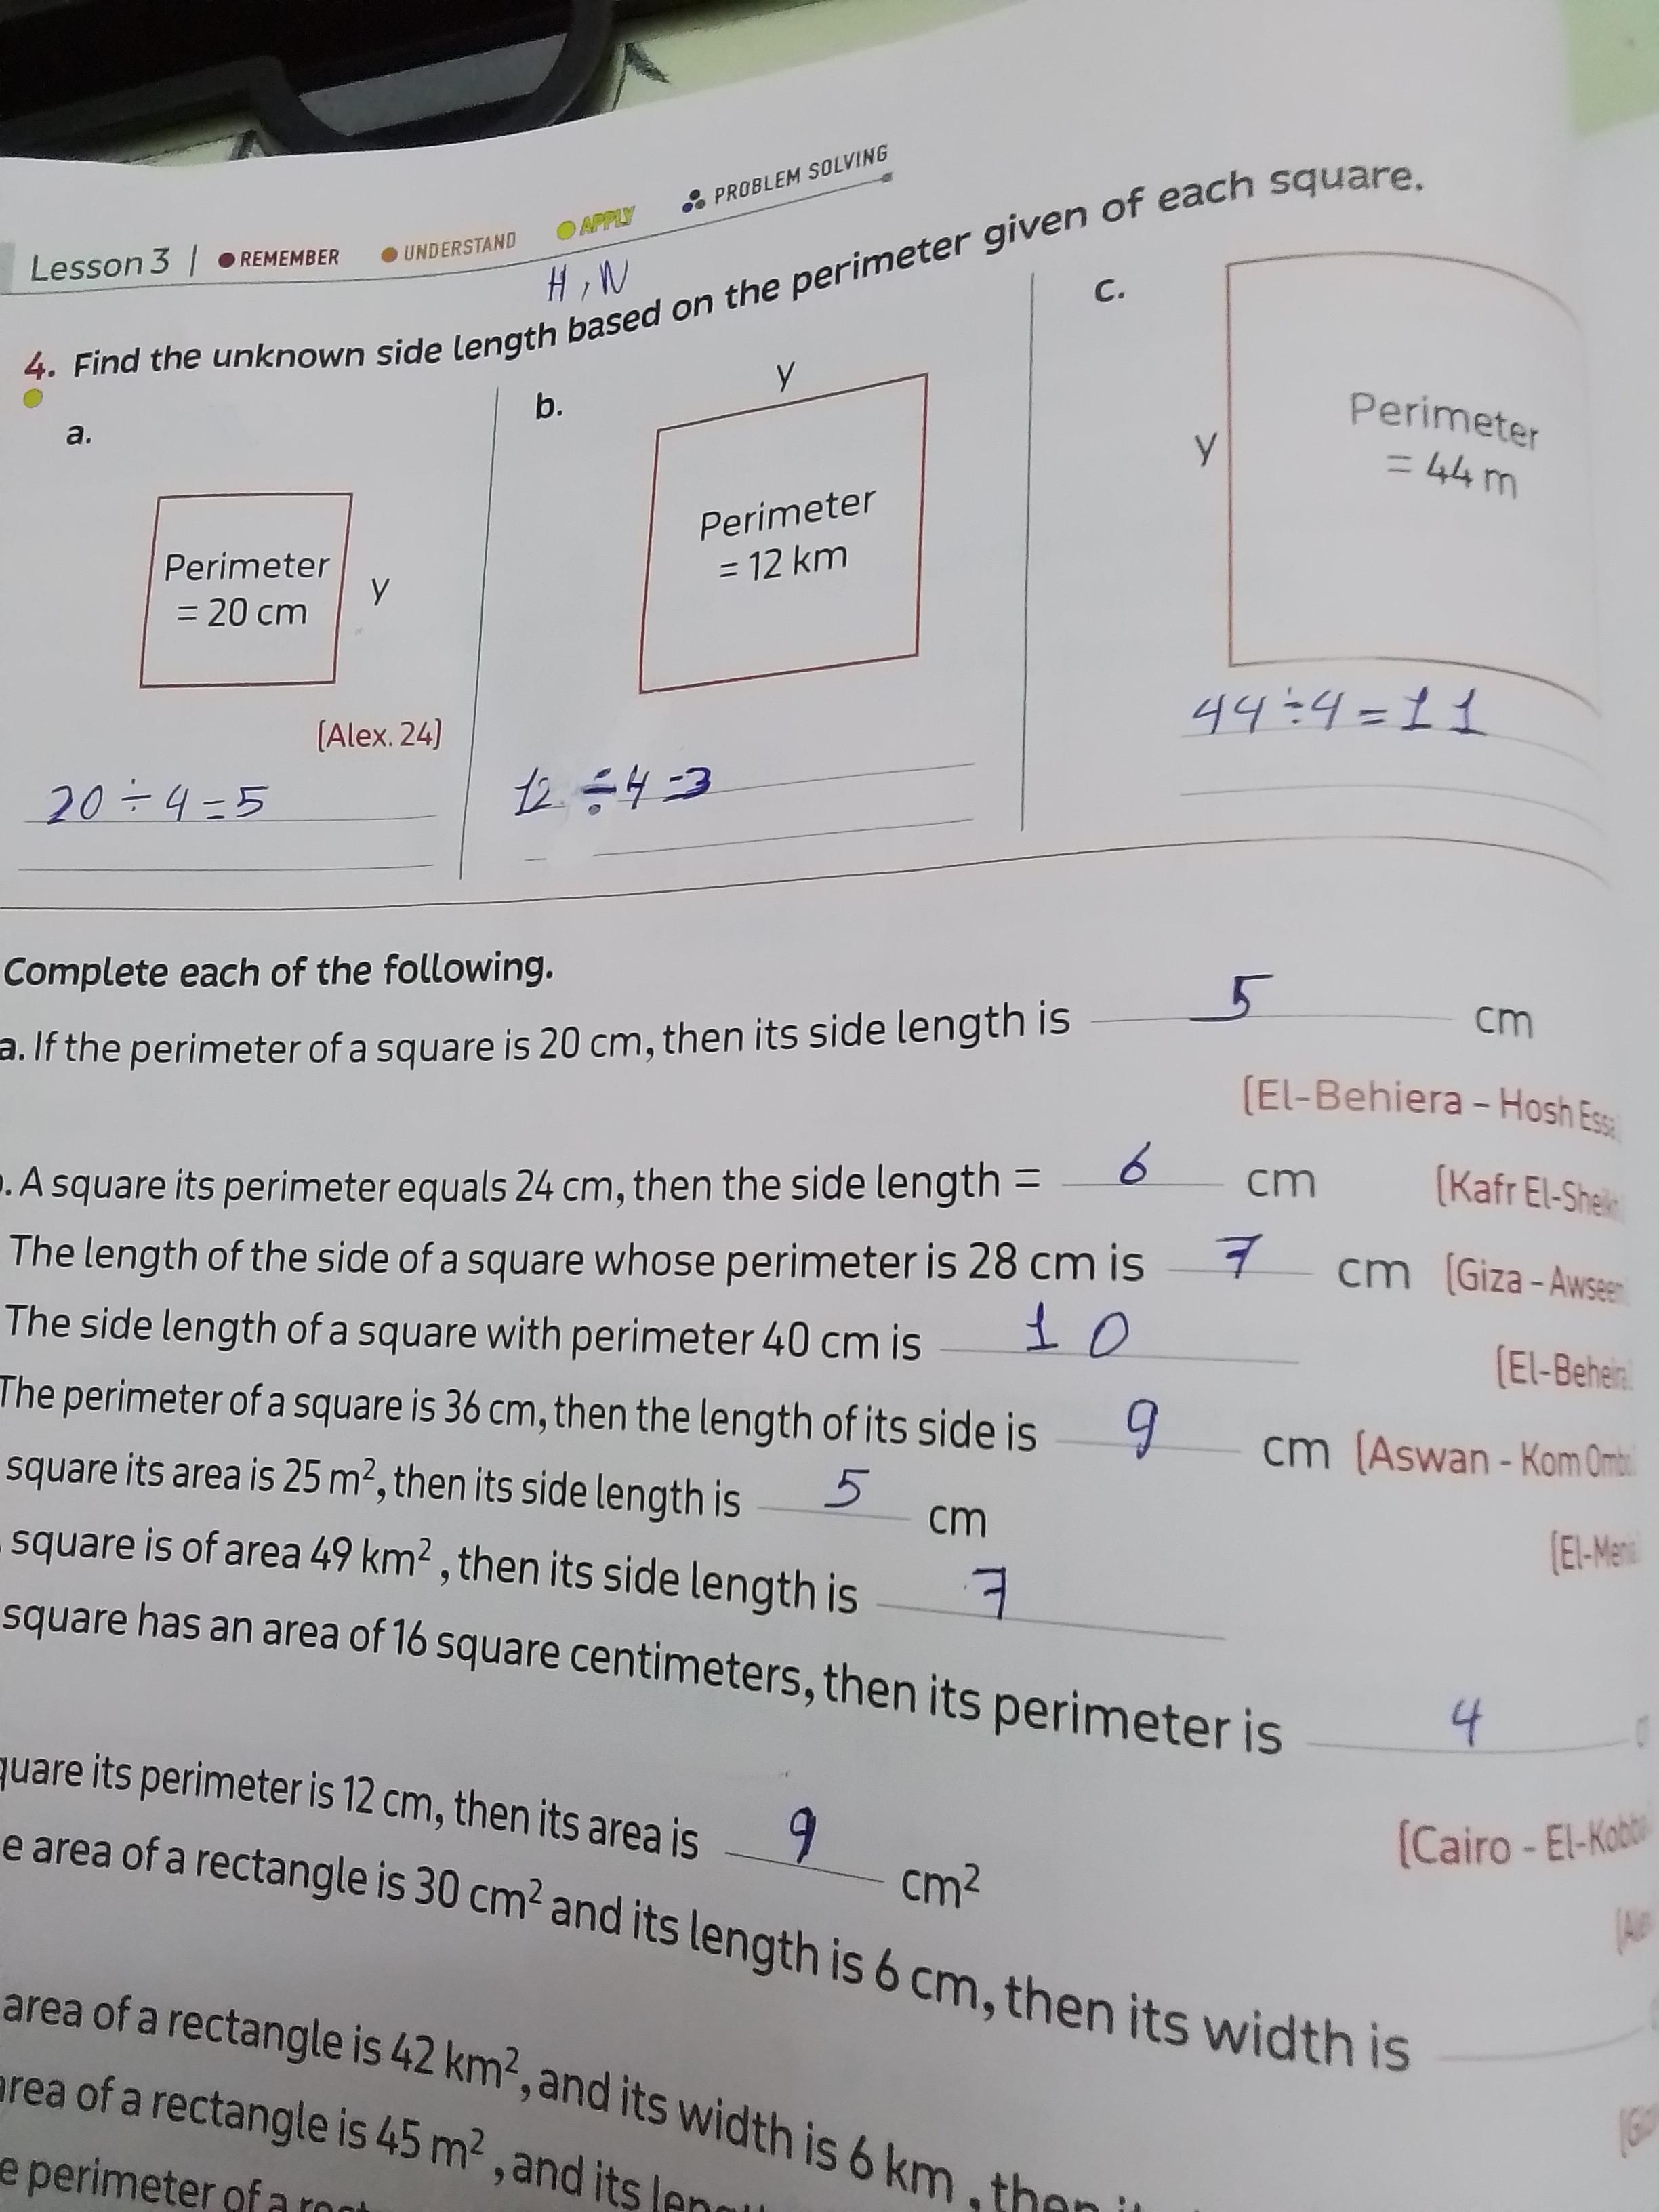 Lesson 3 | REMEMBER UNDERSTAND APPLY PROBLEM SOLVING
H , W
4. Find the unknown side length based on the perimeter given of each square.
a.
Perimeter
= 20 cm
y
[Alex. 24]
20 ÷ 4 = 5
b.
y
Perimeter
= 12 km
12 ÷ 4 = 3
c.
y
Perimeter
= 44 m
44 ÷ 4 = 11
Complete each of the following.
a. If the perimeter of a square is 20 cm, then its side length is 5 cm
[El-Behiera - Hosh
. A square its perimeter equals 24 cm, then the side length = 6 cm [Kafr
The length of the side of a square whose perimeter is 28 cm is 7 cm [Giza -
The side length of a square with perimeter 40 cm is 10
The perimeter of a square is 36 cm, then the length of its side is 9 cm [Aswan - Kom
square its area is 25 m², then its side length is 5 cm
square is of area 49 km², then its side length is 7
square has an area of 16 square centimeters, then its perimeter is 4
its perimeter is 12 cm, then its area is 9 cm²
[Cairo -
area of a rectangle is 30 cm² and its length is 6 cm, then its width is
area of a rectangle is 42 km², and its width is 6 km, then
of a rectangle is 45 m², and its
perimeter of a